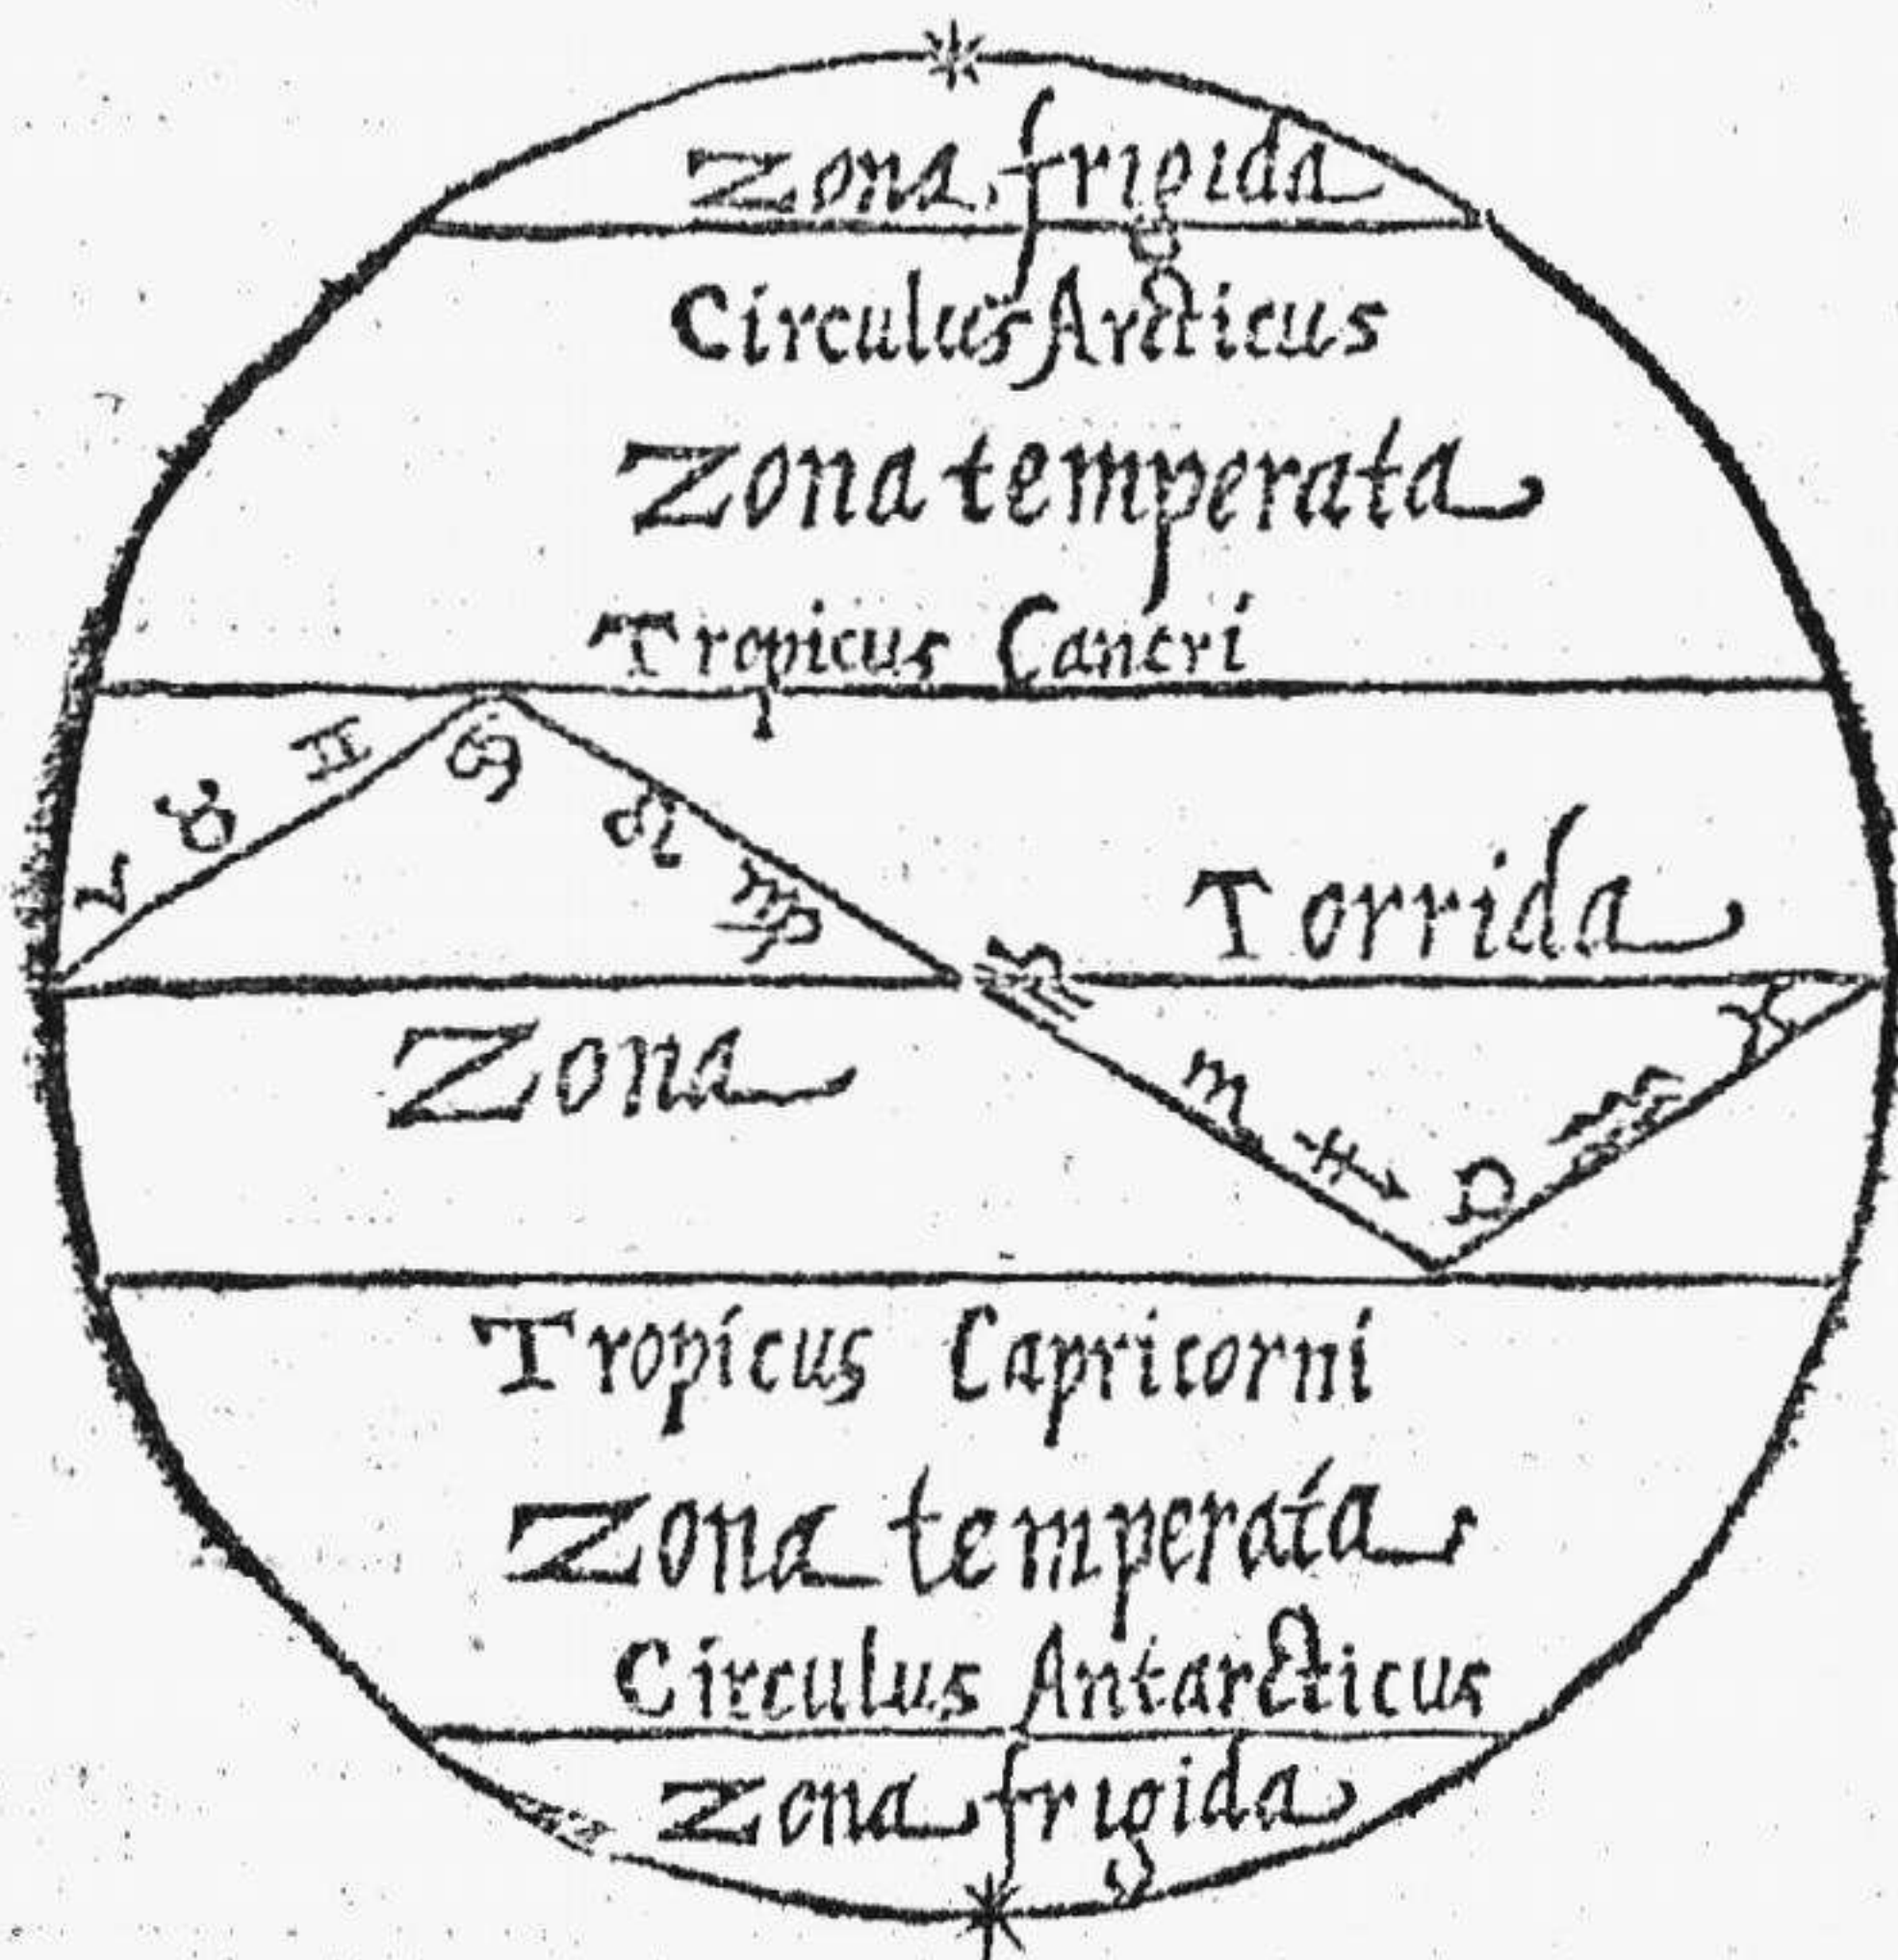 Zona frigida
Circulus Arcticus
Zona temperata
Tropicus Cancri
♈ ♉ ♊ ♋ ♌ ♍
Torrida
♎ ♏ ♐ ♑ ♒ ♓
Zona
Tropicus Capricorni
Zona temperata
Circulus Antarcticus
Zona frigida